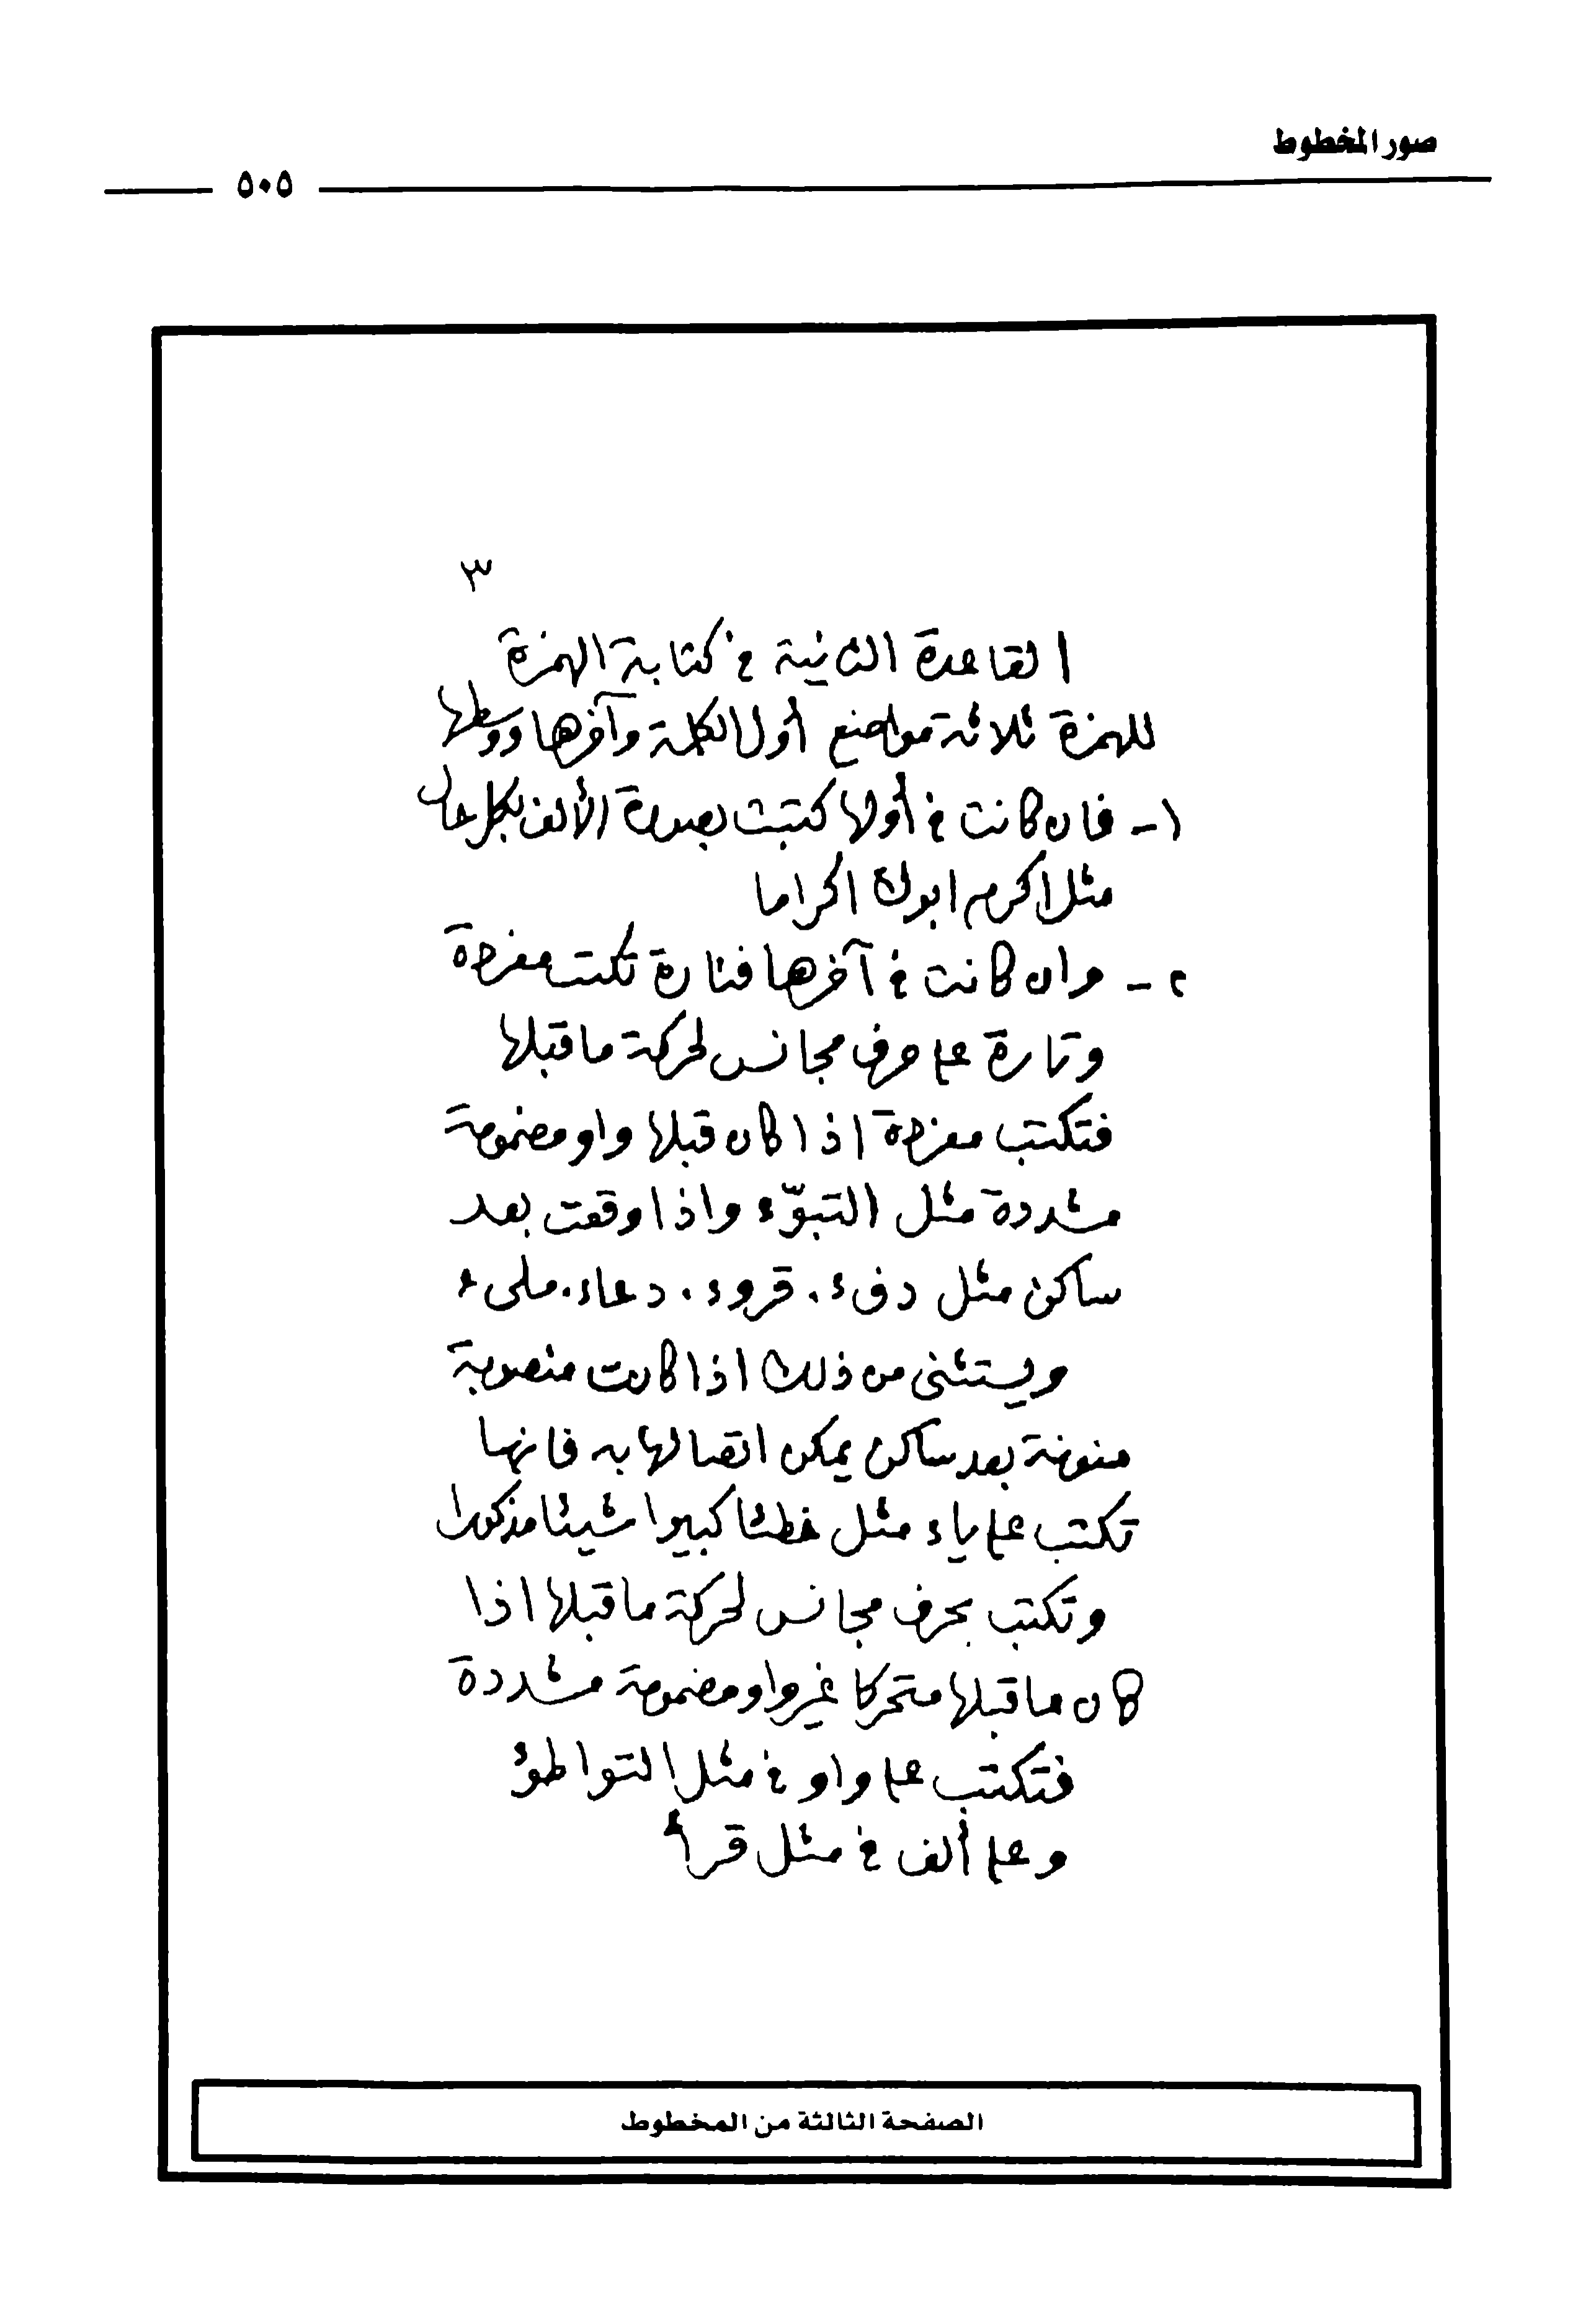 صور المخطوط
٥٠٥
٣
القاعدة الثانية في كتابة الهمزة
للهمزة ثلاثة مواضع أول الكلمة وآخرها ووسطها
١- فان كانت في أولها كتبت بصورة الألف بكل حال
مثل اكرم ابوك اكراما
٢- وان كانت في آخرها فتارة تكتب مفردة
وتارة على حرف مجانس لحركة ما قبلها
فتكتب مفردة اذا كان قبلها واو مضمومة
مشددة مثل التبوّء واذا وقعت بعد
ساكن مثل دفء . قروء . دعاء . ملىء
ويستثنى من ذلك اذا كانت منصوبة
منونة بعد ساكن يمكن اتصالها به فانها
تكتب على ياء مثل خطئا كبيرا شيئا مذكورا
وتكتب بحرف مجانس لحركة ما قبلها اذا
كان ما قبلها متحركا غير واو مضمومة مشددة
فتكتب على واو في مثل التواطؤ
وعلى ألف في مثل قرأ
الصفحة الثالثة من المخطوط